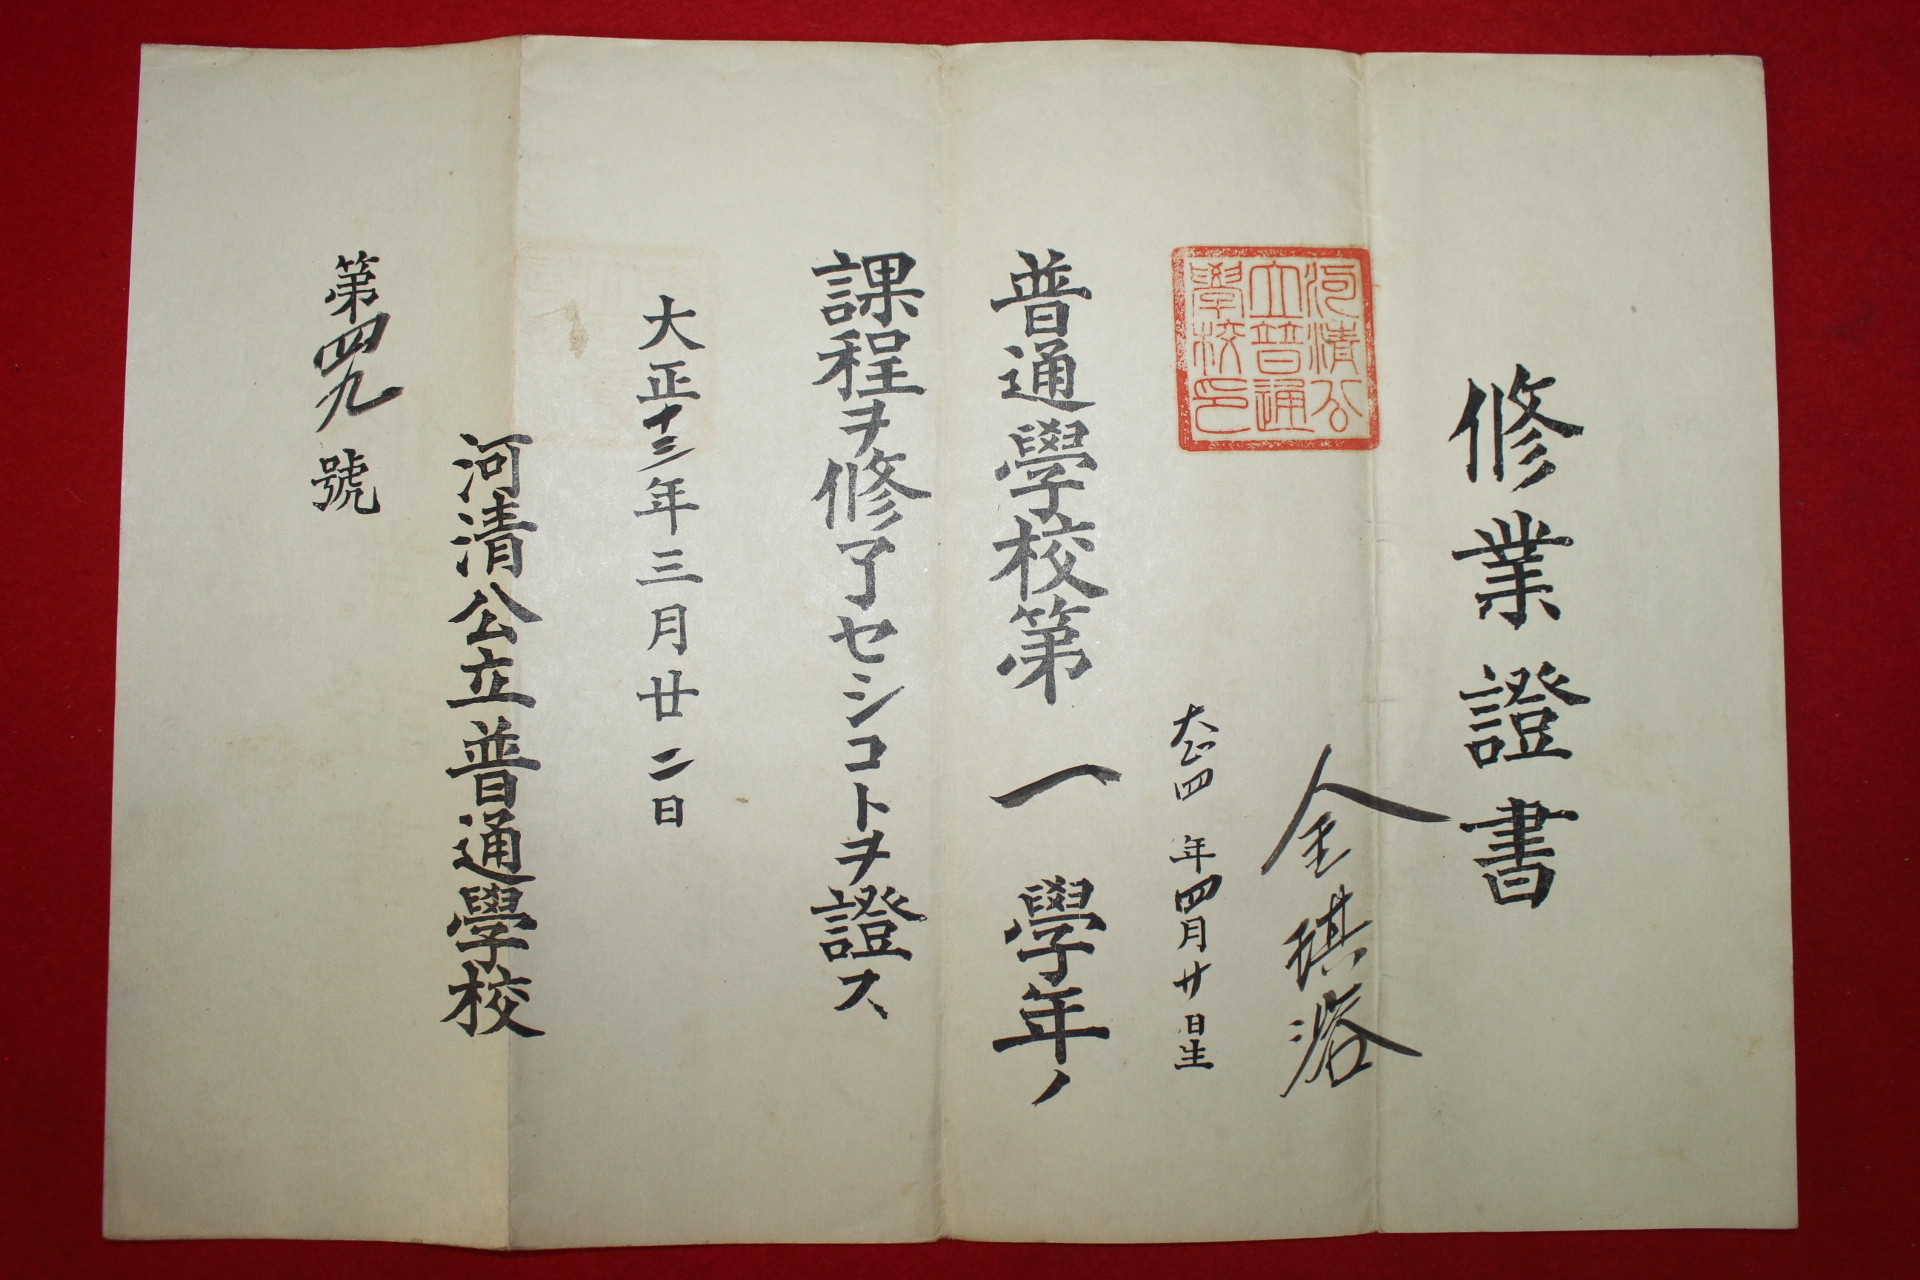 修業證書
金琪濬
大正四年四月廿日生
河清公
立普通
學校印
普通學校第一學年ノ
課程ヲ修了セシコトヲ證ス
大正十三年三月廿二日
河清公立普通學校
第四九號